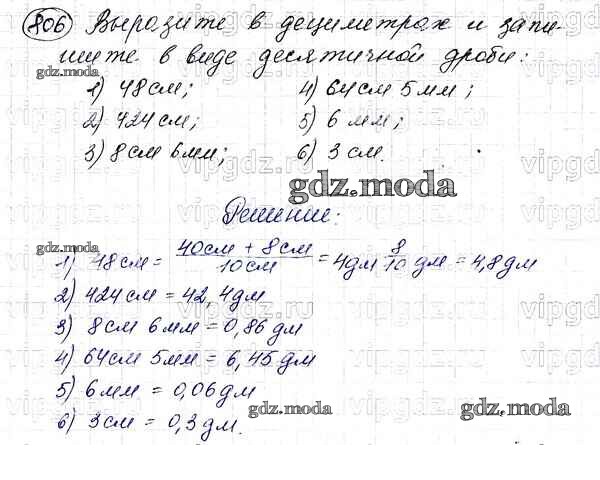 806 Выразите в дециметрах и запи-
шите в виде десятичной дроби:
gdz.moda
1) 48 см; 4) 64 см 5 мм;
2) 424 см; 5) 6 мм;
3) 8 см 6 мм; 6) 3 см.
gdz.moda
Решение:
gdz.moda
1) 48 см = 40 см + 8 см / 10 см = 4 дм 8/10 дм = 4,8 дм
2) 424 см = 42,4 дм
3) 8 см 6 мм = 0,86 дм
4) 64 см 5 мм = 6,45 дм
5) 6 мм = 0,06 дм
6) 3 см = 0,3 дм.
gdz.moda gdz.moda